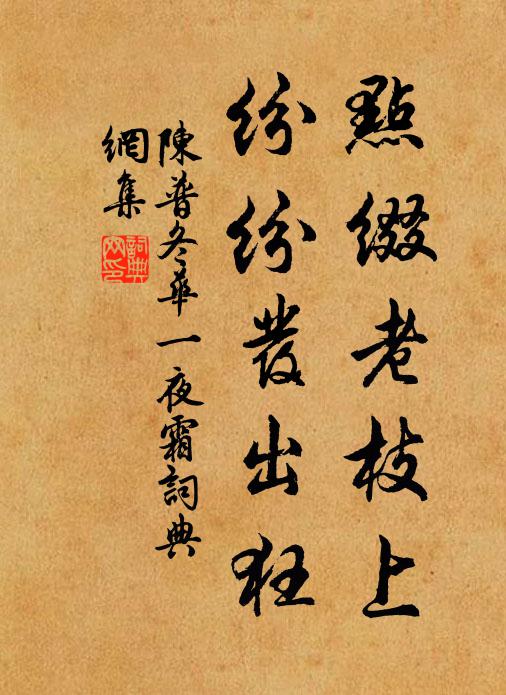 點綴老枝上
紛紛發出狂
陳普冬華一夜霜詞典
網集
詞典
网印